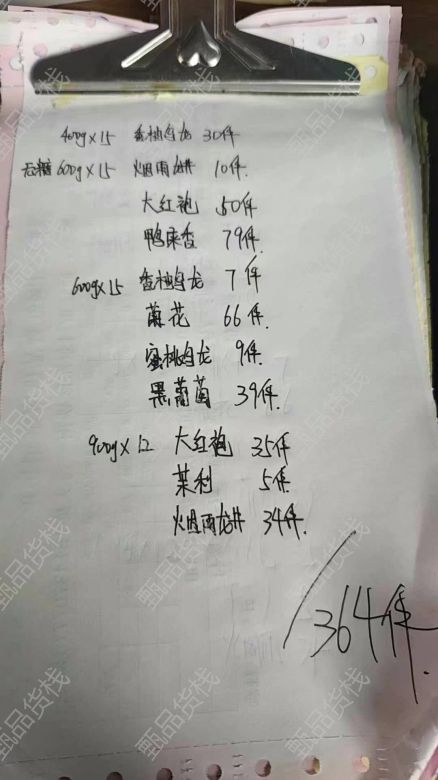 400g×15 香柚乌龙 30件
无糖 600g×15 烟雨龙井 10件.
大红袍 50件
鸭屎香 79件.
600g×15 香柚乌龙 7件
菊花 66件.
蜜桃乌龙 9件.
黑葡萄 39件.
900g×12 大红袍 35件
茉利 5件.
烟雨龙井 34件.
364件.
甄品货栈